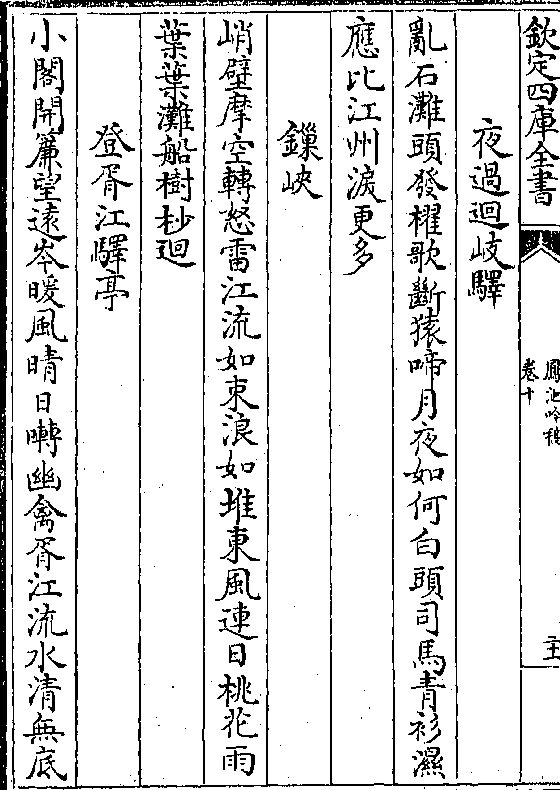 欽定四庫全書
鳳池吟稿
卷十
夜過迴岐驛
亂石灘頭發櫂歌斷猿啼月夜如何白頭司馬青衫濕
應比江州淚更多
鏁峽
峭壁摩空轉怒雷江流如束浪如堆東風連日桃花雨
葉葉灘船樹杪迴
登胥江驛亭
小閣開簾望遠岑暖風晴日囀幽禽胥江流水清無底